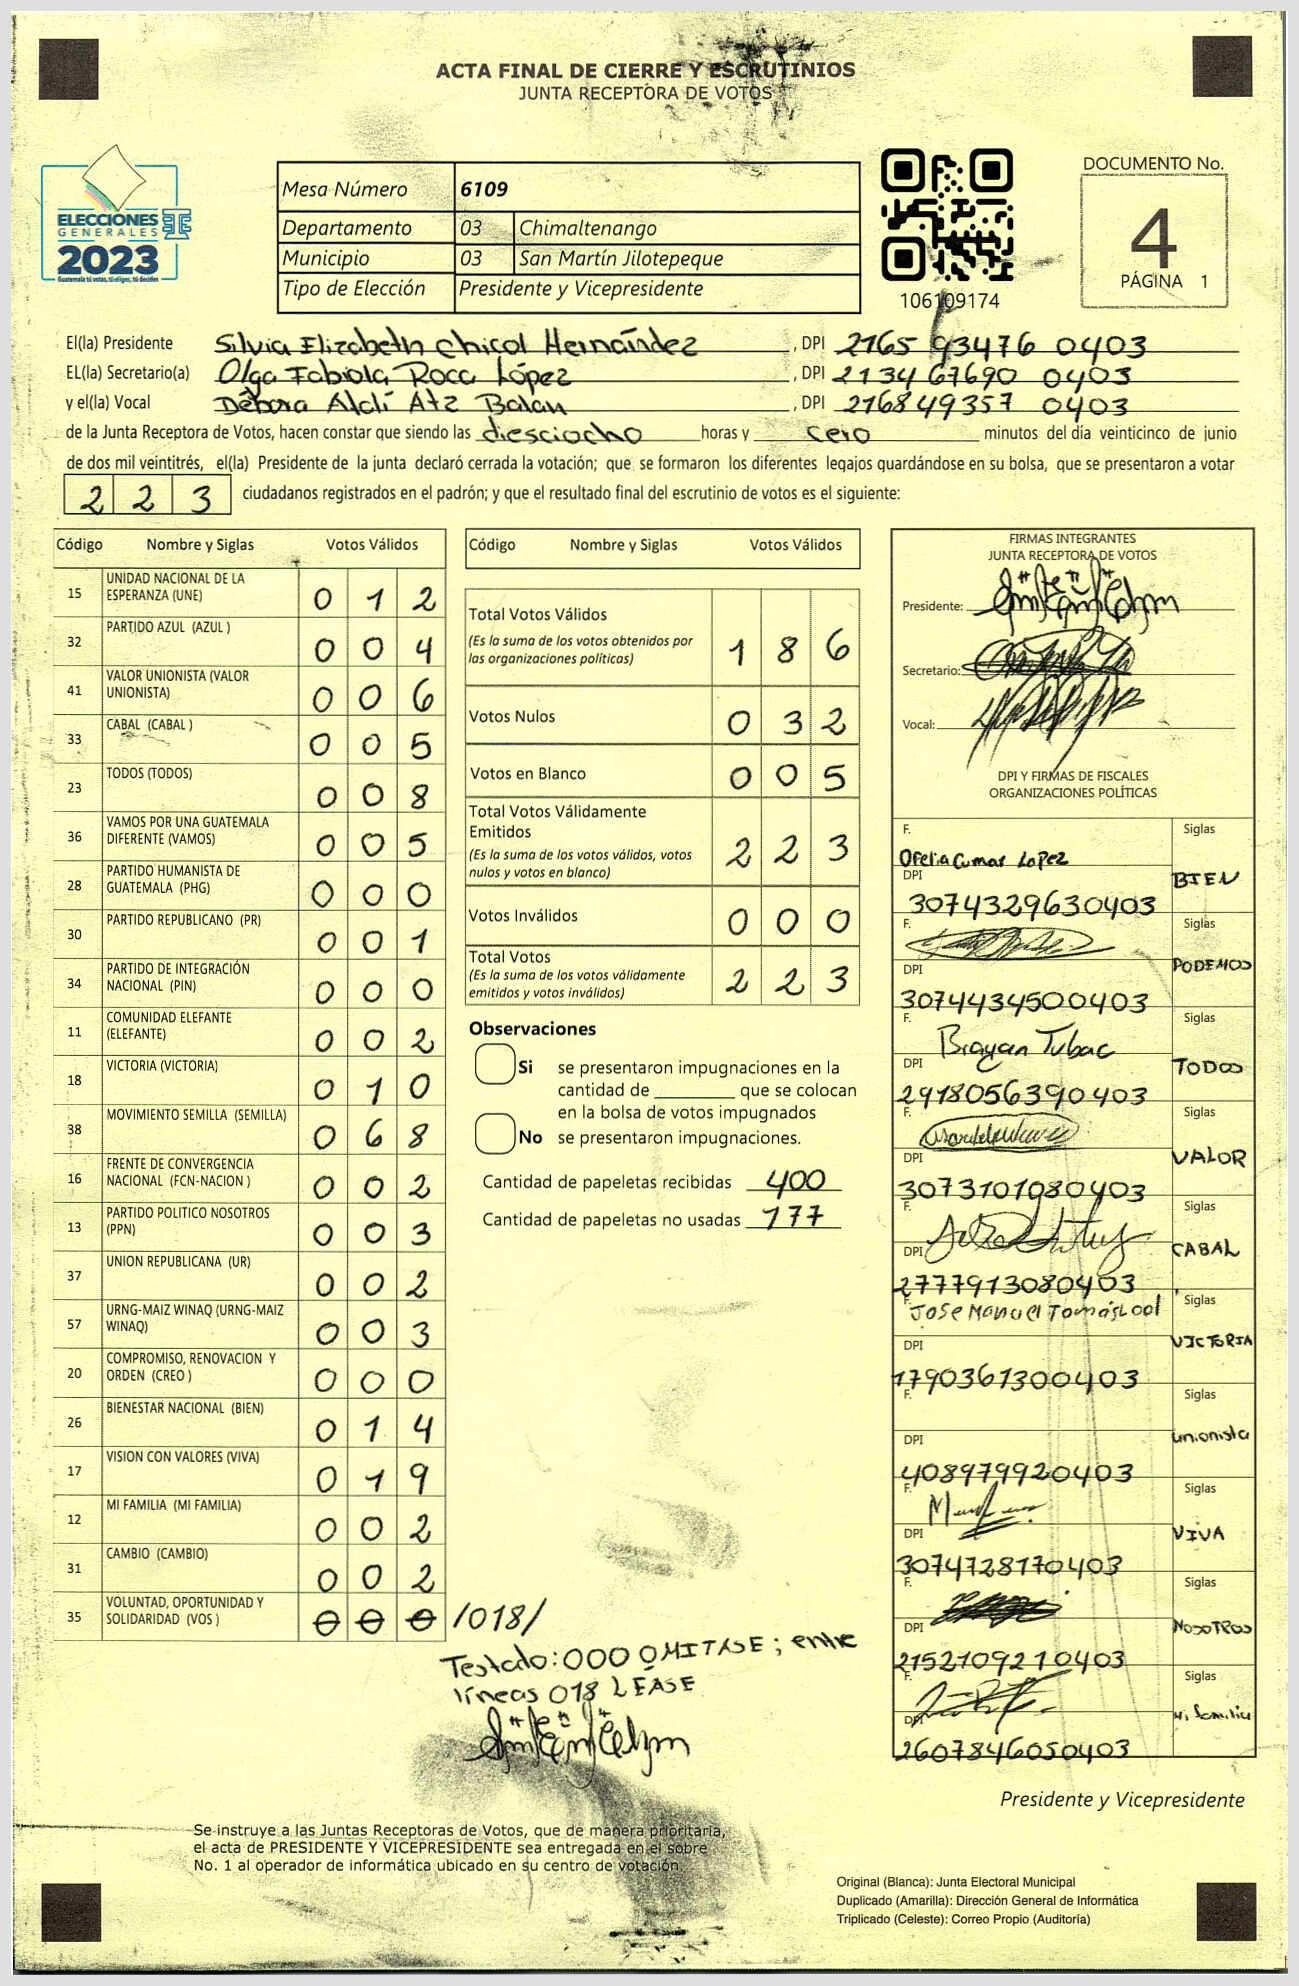 ACTA FINAL DE CIERRE Y ESCRUTINIOS
JUNTA RECEPTORA DE VOTOS
ELECCIONES
GENERALES
2023
Guatemala tú votas, tú eliges, tú decides
Mesa Número 6109
Departamento 03 Chimaltenango
Municipio 03 San Martín Jilotepeque
Tipo de Elección Presidente y Vicepresidente
106109174
DOCUMENTO No.
4
PÁGINA 1
El(la) Presidente Silvia Elizabeth Chicol Hernández, DPI 2165 93476 0403
EL(la) Secretario(a) Olga Fabiola Roca López, DPI 2134 67690 0403
y el(la) Vocal Débora Aldí Atz Balan, DPI 216849357 0403
de la Junta Receptora de Votos, hacen constar que siendo las diesciocho horas y cero minutos del día veinticinco de junio
de dos mil veintitrés, el(la) Presidente de la junta declaró cerrada la votación; que se formaron los diferentes legajos quardándose en su bolsa, que se presentaron a votar
223 ciudadanos registrados en el padrón; y que el resultado final del escrutinio de votos es el siguiente:
Código Nombre y Siglas Votos Válidos
15 UNIDAD NACIONAL DE LA ESPERANZA (UNE) 0 1 2
32 PARTIDO AZUL (AZUL ) 0 0 4
41 VALOR UNIONISTA (VALOR UNIONISTA) 0 0 6
33 CABAL (CABAL ) 0 0 5
23 TODOS (TODOS) 0 0 8
36 VAMOS POR UNA GUATEMALA DIFERENTE (VAMOS) 0 0 5
28 PARTIDO HUMANISTA DE GUATEMALA (PHG) 0 0 0
30 PARTIDO REPUBLICANO (PR) 0 0 1
34 PARTIDO DE INTEGRACIÓN NACIONAL (PIN) 0 0 0
11 COMUNIDAD ELEFANTE (ELEFANTE) 0 0 2
18 VICTORIA (VICTORIA) 0 1 0
38 MOVIMIENTO SEMILLA (SEMILLA) 0 6 8
16 FRENTE DE CONVERGENCIA NACIONAL (FCN-NACION ) 0 0 2
13 PARTIDO POLITICO NOSOTROS (PPN) 0 0 3
37 UNION REPUBLICANA (UR) 0 0 2
57 URNG-MAIZ WINAQ (URNG-MAIZ WINAQ) 0 0 3
20 COMPROMISO, RENOVACION Y ORDEN (CREO ) 0 0 0
26 BIENESTAR NACIONAL (BIEN) 0 1 4
17 VISION CON VALORES (VIVA) 0 1 9
12 MI FAMILIA (MI FAMILIA) 0 0 2
31 CAMBIO (CAMBIO) 0 0 2
35 VOLUNTAD, OPORTUNIDAD Y SOLIDARIDAD (VOS ) 0 0 0 /018/
Testado: 000 OMITASE; entre
líneas 018 LEASE
Código Nombre y Siglas Votos Válidos
Total Votos Válidos 1 8 6
(Es la suma de los votos obtenidos por
las organizaciones políticas)
Votos Nulos 0 3 2
Votos en Blanco 0 0 5
Total Votos Válidamente
Emitidos 2 2 3
(Es la suma de los votos válidos, votos
nulos y votos en blanco)
Votos Inválidos 0 0 0
Total Votos 2 2 3
(Es la suma de los votos válidamente
emitidos y votos inválidos)
Observaciones
Si se presentaron impugnaciones en la
cantidad de ________ que se colocan
en la bolsa de votos impugnados
No se presentaron impugnaciones.
Cantidad de papeletas recibidas 400
Cantidad de papeletas no usadas 177
FIRMAS INTEGRANTES
JUNTA RECEPTORA DE VOTOS
Presidente:
Secretario:
Vocal:
DPI Y FIRMAS DE FISCALES
ORGANIZACIONES POLÍTICAS
F. Ofelia Cumar Lopez Siglas BIEN
DPI 3074329630403
F. Siglas PODEMOS
DPI 3074434500403
F. Brayan Tubac Siglas TODOS
DPI 2918056390403
F. Siglas VALOR
DPI 3073101080403
F. Siglas CABAL
DPI 2777913080403
F. Jose Manuel Tomás Siglas VICTORIA
DPI 1790361300403
F. Siglas unionista
DPI 408979920403
F. Siglas VIVA
DPI 3074728170403
F. Siglas NOSOTROS
DPI 2152109210403
F. Siglas Mi familia
DPI 2607846050403
Presidente y Vicepresidente
Se instruye a las Juntas Receptoras de Votos, que de manera prioritaria,
el acta de PRESIDENTE Y VICEPRESIDENTE sea entregada en el sobre
No. 1 al operador de informática ubicado en su centro de votación.
Original (Blanca): Junta Electoral Municipal
Duplicado (Amarilla): Dirección General de Informática
Triplicado (Celeste): Correo Propio (Auditoría)